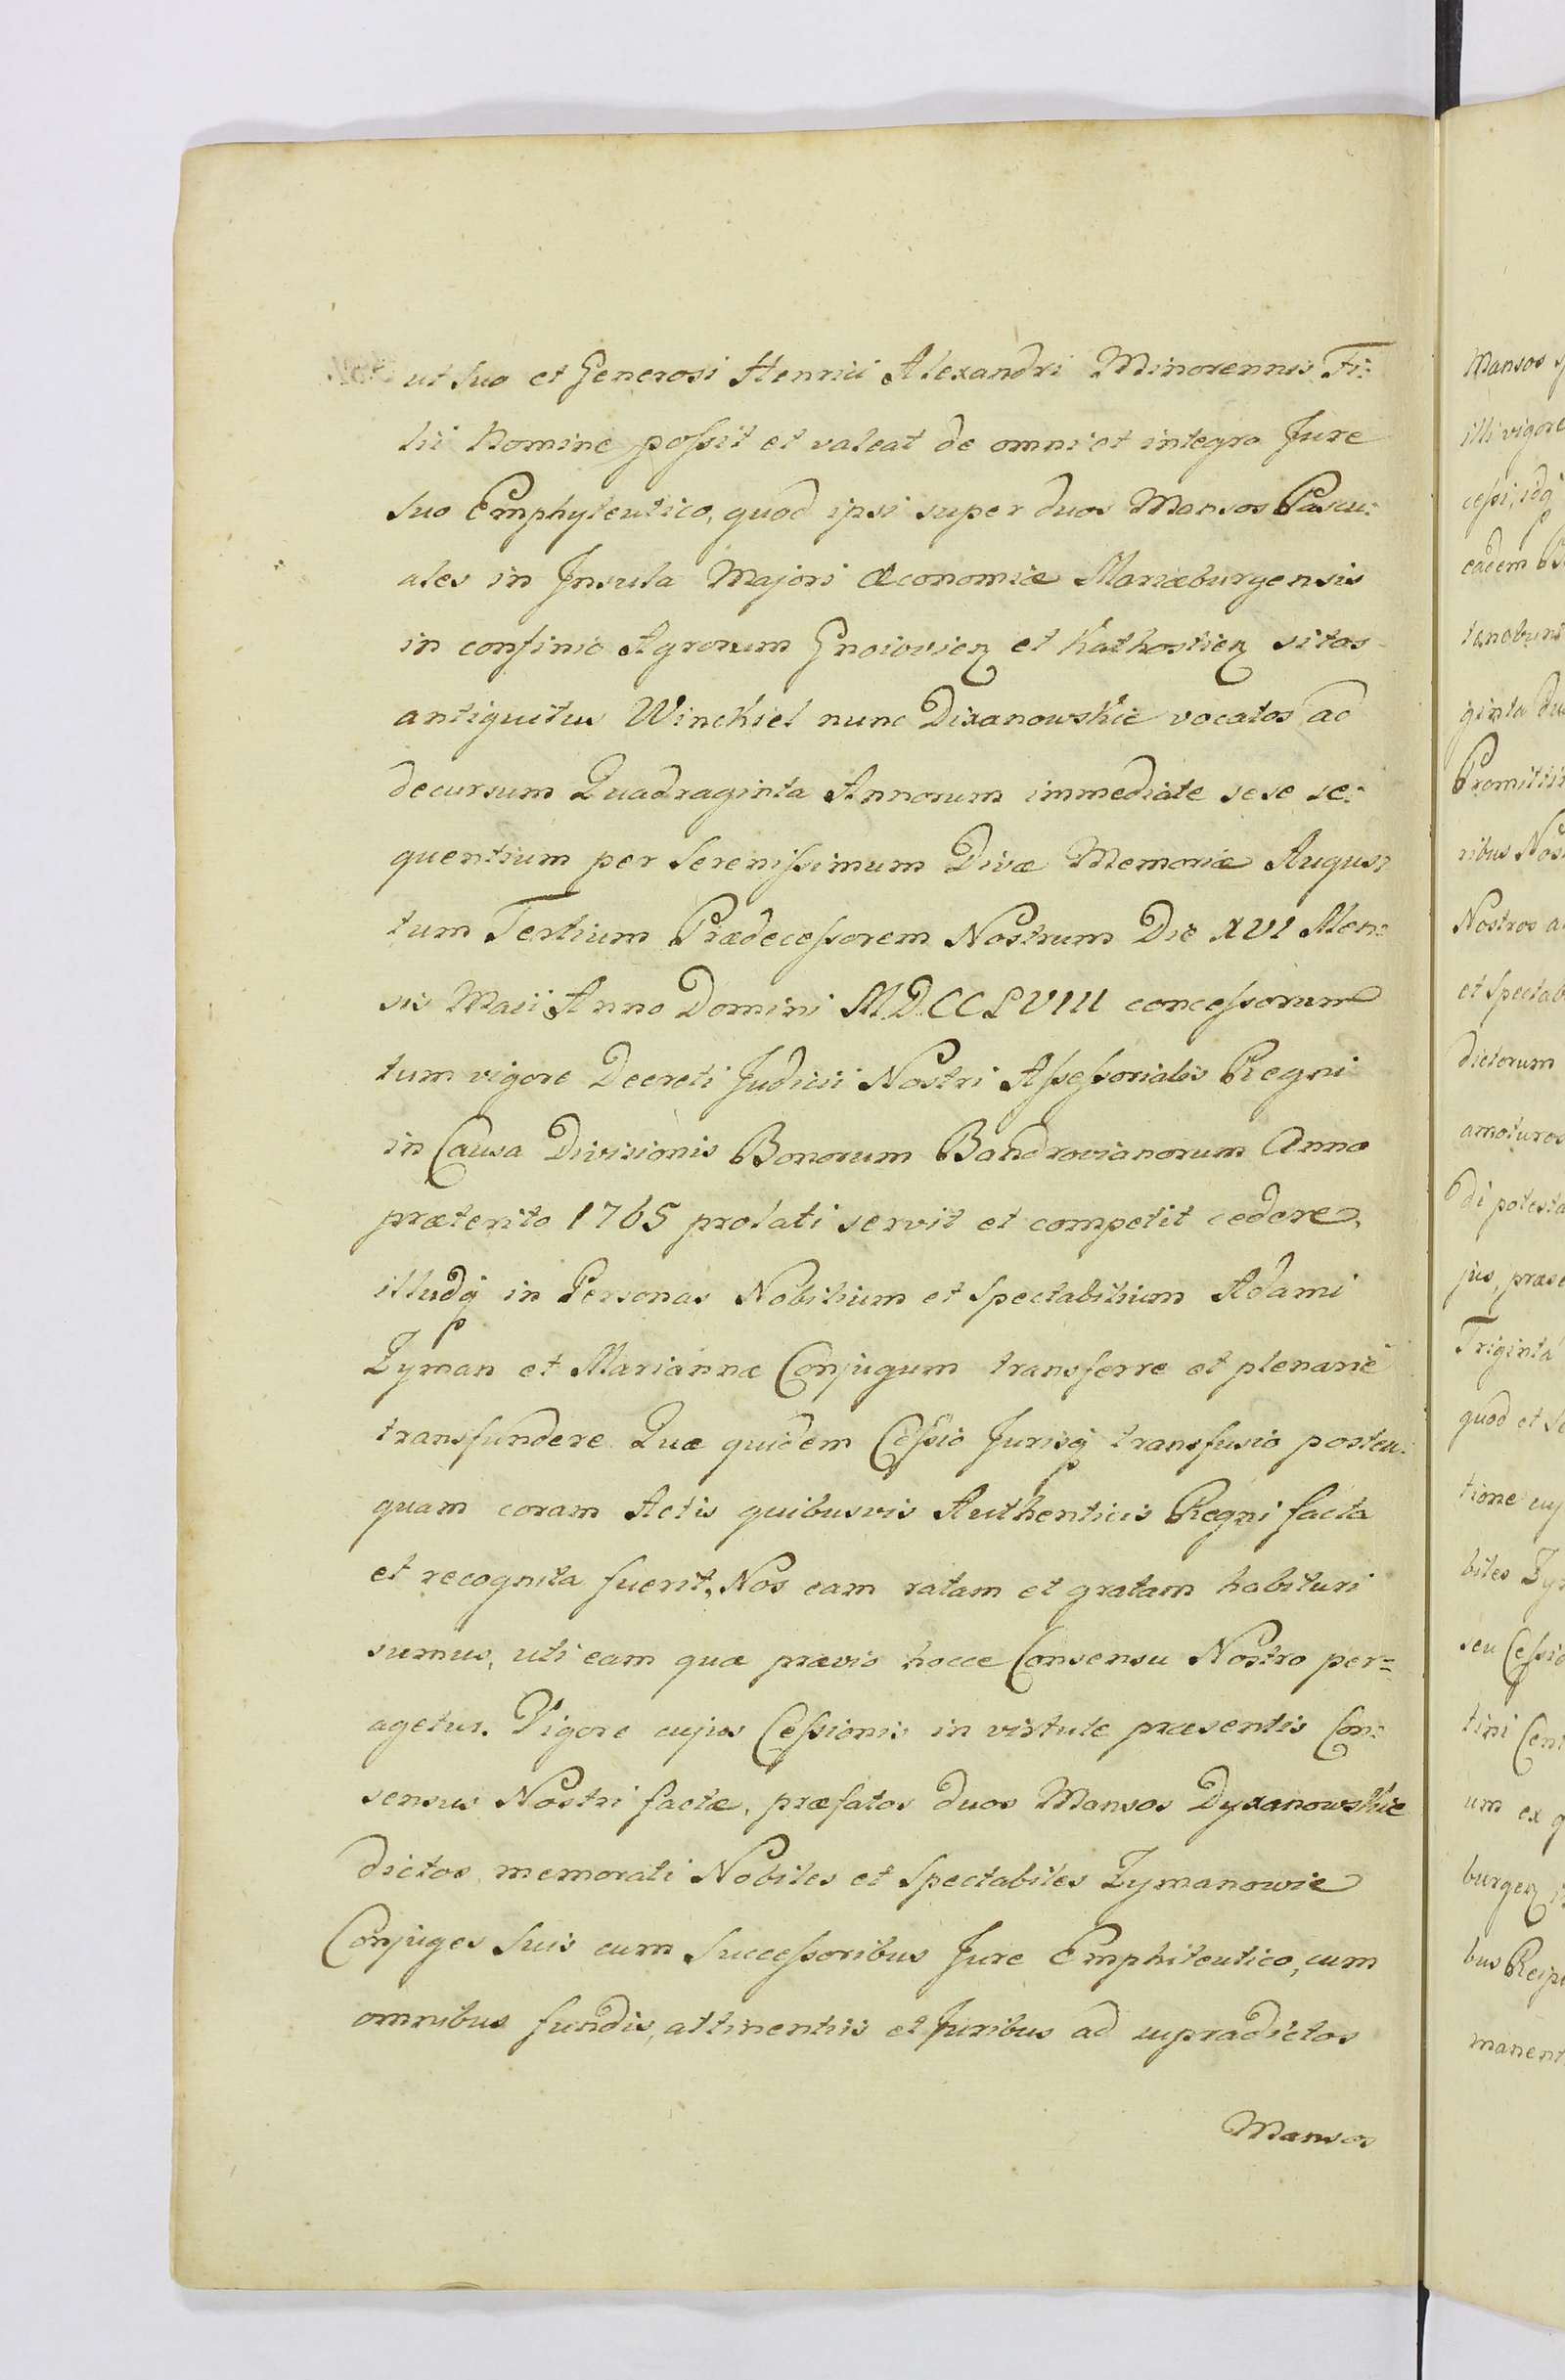 ut Suo et Generosi Henrici Alexandri Minorennis Fi:
lii Nomine possit et valeat de omni et integro Jure
Suo Emphyteutico, quod ipsi super duos Mansos Pascu:
ales in Insula Majori Œconomiæ Mariæburgensis
in confinio Agrorum Gnoiovien et Kathostien sitos
antiquitus Winckiel nunc Dixanowskie vocatos ad
decursum Quadraginta Annorum immediate sese se:
quentium per Serenissimum Divæ Memoriæ Augus:
tum Tertium Prædecessorem Nostrum Die XVI Men:
sis Maii Anno Domini M.D.CCLVIII concessorum
tum vigore Decreti Judicii Nostri Assessorialis Regni
in Causa Divisionis Bonorum Bandrovianorum Anno
præterito 1765 prolati servit et competit cedere,
illudq in Personas Nobilium et Spectabilium Adami
Zyman et Mariannæ Conjugum transferre et plenarie
transfundere. Quæ quidem Cessio Jurisq transfusio postea:
quam coram Actis quibusvis Authenticis Regni facta
et recognita fuerit, Nos eam ratam et gratam habituri
sumus, uti eam quæ prævio hocce Consensu Nostro per=
agetur. Vigore cujus Cessionis in virtute præsentis Con:
sensus Nostri factæ, præfatos duos Mansos Dyxanowskie
dictos memorati Nobiles et Spectabiles Zymanowie
Conjuges Suis cum Successoribus Jure Emphiteutico, cum
omnibus fundis, attinentiis et Juribus ad supradictos
Mansos
Mansos
illi vigore
cessi, idq
eadem
tenebunt
ginta
ribus
Nostros
et Spectab
dictorum
amoturos
di potesta
jus, præse
Triginta
quod et
tione
biles Zy
seu Cessio
tini
um ex
burgen
bus
manent